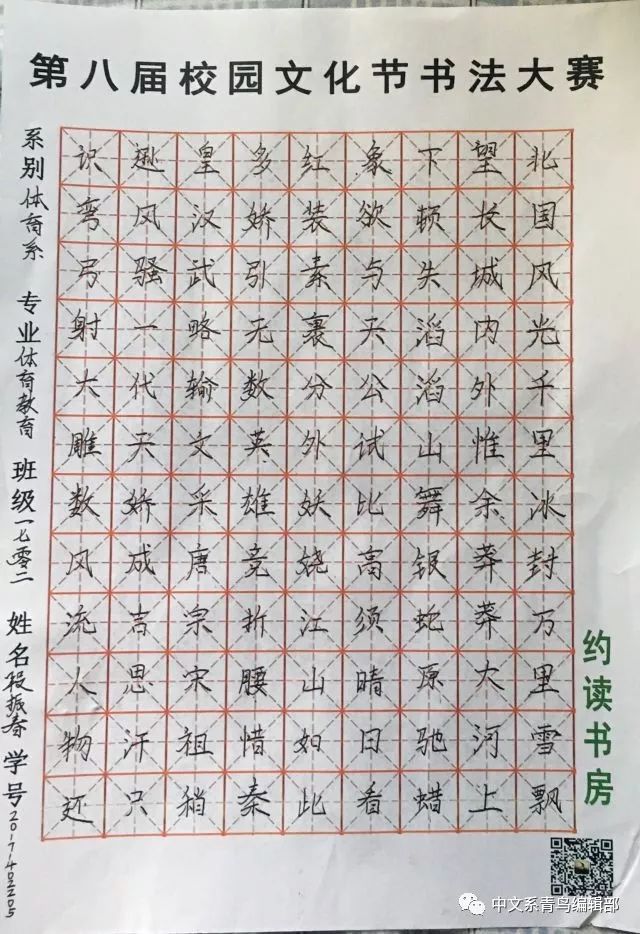 第八届校园文化节书法大赛
北国风光千里冰封万里雪飘
望长城内外惟余莽莽大河上
下顿失滔滔山舞银蛇原驰蜡
象欲与天公试比高须晴日看
红装素裹分外妖娆江山如此
多娇引无数英雄竞折腰惜秦
皇汉武略输文采唐宗宋祖稍
逊风骚一代天娇成吉思汗只
识弯弓射大雕数风流人物还
系别体育系 专业体育教育 班级一七零二 姓名段振春 学号
约读书房
中文系青鸟编辑部